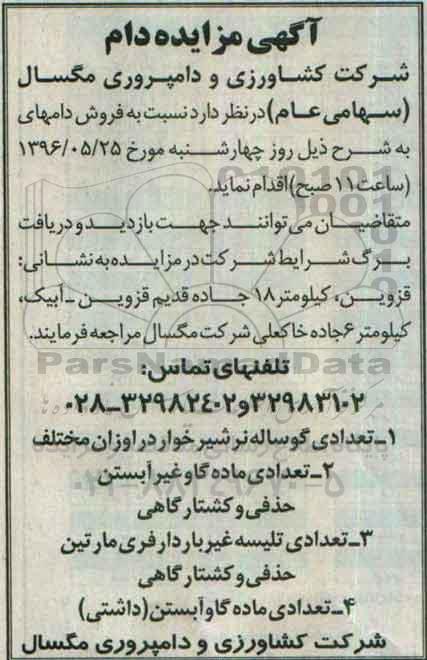 آگهی مزایده دام
شرکت کشاورزی و دامپروری مگسال
(سهامی عام) در نظر دارد نسبت به فروش دامهای
به شرح ذیل روز چهارشنبه مورخ ۱۳۹۶/۰۵/۲۵
(ساعت ۱۱ صبح) اقدام نماید.
متقاضیان می توانند جهت بازدید و دریافت
برگ شرایط شرکت در مزایده به نشانی:
قزوین، کیلومتر ۱۸ جاده قدیم قزوین ـ آبیک،
کیلومتر ۶ جاده خاکعلی شرکت مگسال مراجعه فرمایند.
ParsNamadData
تلفنهای تماس:
۳۲۹۸۳۱۰۲ و ۳۲۹۸۲۴۰۲ـ۰۲۸
۱ـ تعدادی گوساله نر شیرخوار در اوزان مختلف
۲ـ تعدادی ماده گاو غیر آبستن
۰۲۱-۸۸۳۴۹۶۷۰-۵
حذفی و کشتارگاهی
۳ـ تعدادی تلیسه غیر باردار فری مارتین
حذفی و کشتارگاهی
۴ـ تعدادی ماده گاو آبستن (داشتی)
شرکت کشاورزی و دامپروری مگسال